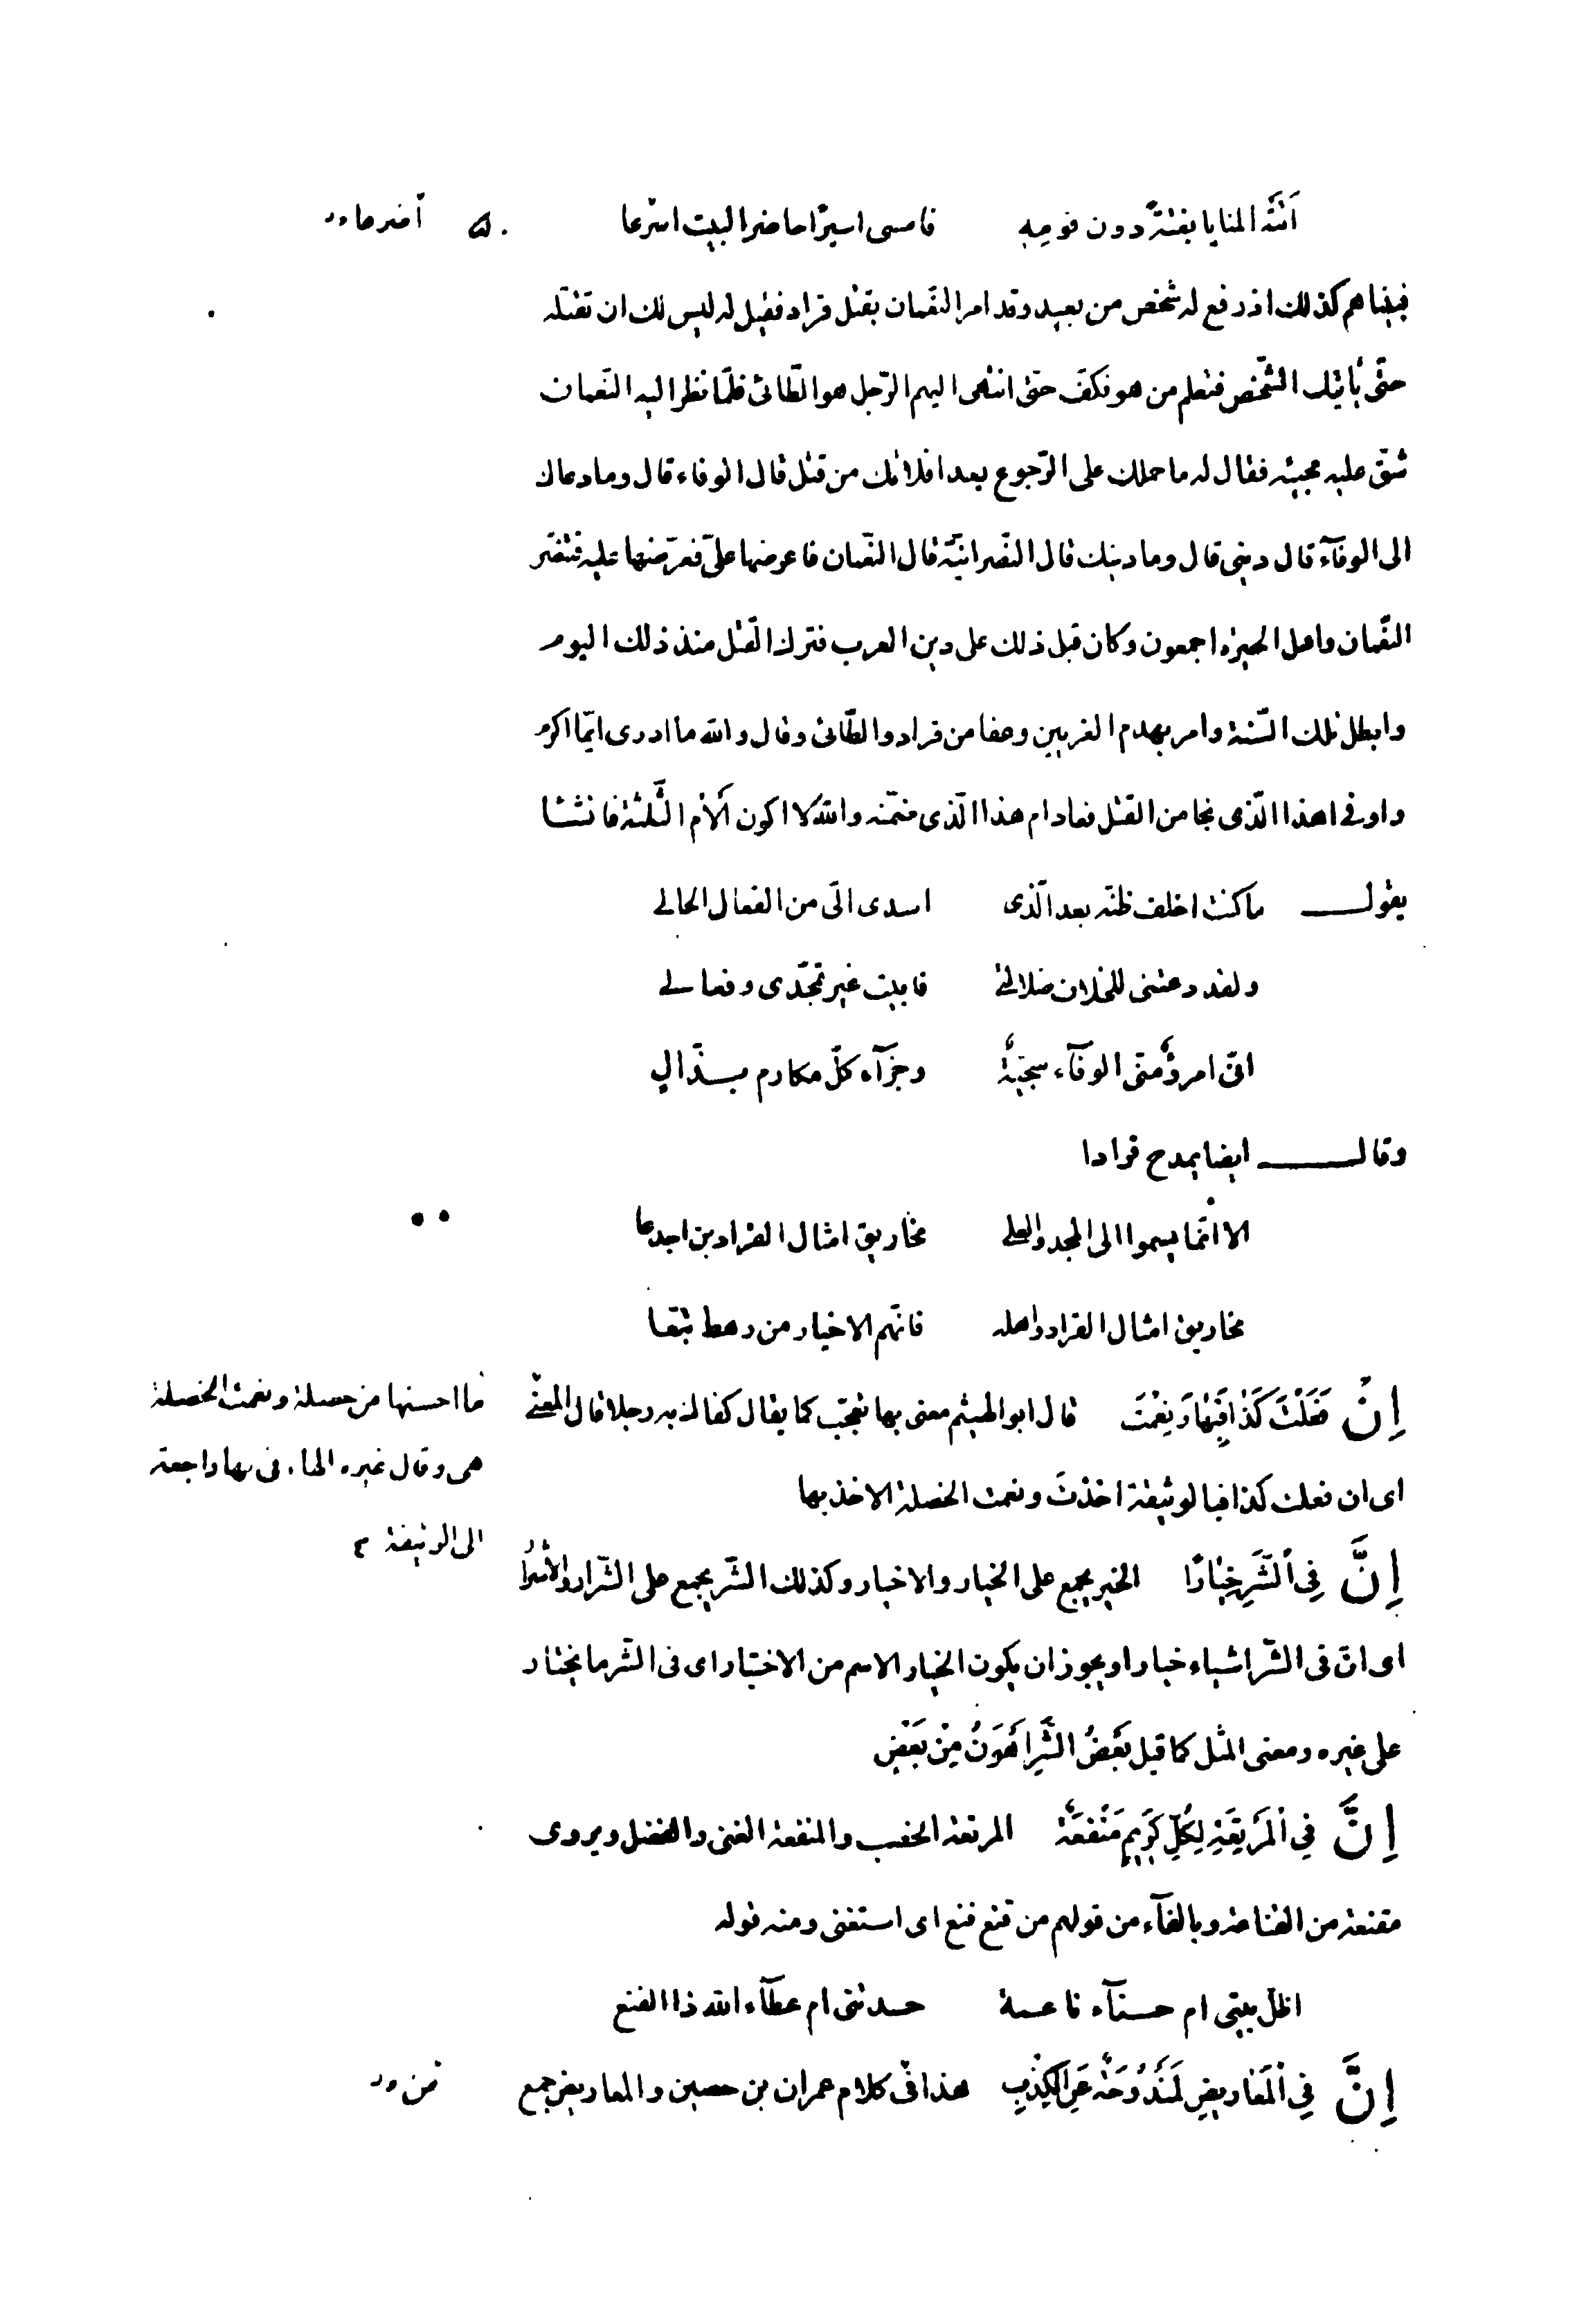 اَتَتْهُ المنايا بغتةً دون قومِهِ فامسى اسيرًا حاضر البيت اسرعا
أضرعا ور
فبيناهم كذلك اذ رفع له شخص من بعيد وقد امر النعمان بقتل قراد فقيل له ليس لك ان تقتله
حتّى يأتيك الشّخص فتعلم من هو فكفّ حتى انتهى اليهم الرّجل هو الطّائى فلمّا نظر اليه النّعمان
شقّ عليه مجيئه فقال له ما حملك على الرّجوع بعد افلاتك من قتل قال الوفاء قال وما دعاك
الى الوفآء قال دينى قال وما دينك قال النّصرانيّة قال النّعمان فاعرضها علىّ فعرضها عليه فتنصّر
النّعمان واهل الحيرة اجمعون وكان قبل ذلك على دين العرب فترك القتل منذ ذلك اليوم
وابطل تلك السّنة وامر بهدم الغريين وعفا من قراد والطّائى وقال والله ما ادرى ايّما اكرم
واوفى اهذا الّذى نجا من القتل فعاد ام هذا الّذى ضمّنه والله لا اكون ألأم الثّلثة فانشا
يقول ما كنت اخلف ظنّه بعد الّذى اسدى الىّ من الفعال الحالى
ولقد دعتنى للخلاف ضلالتى فابيت غير تمجّدى وفعالى
انّى امرؤٌ منّى الوفآء سجيّةٌ وجزآء كلّ مكارم بذّالِ
وقال ايضا يمدح قرادا
الا انّما يسموا الى المجد والعلى مخاريق امثال القراد بن اجدعا
مخاريق امثال القراد واهله فانّهم الاخيار من رهط تبّعا
اِنْ فَعَلْتَ كَذَا فَبِهَا وَنِعْمَتَ قال ابو الهيثم معنى بها تعجّب كما يقال كفاك به رجلا قال المعنى
ما احسنها من خصلة ونعمت الخصلة
هى وقال غيره الهاء فى بها راجعة
الى الوثيقة
اى ان فعلت كذا فبالوثيقة اخذتَ ونعمت الخصلة الاخذ بها
اِنَّ فِى اُلشَّرِّ خِيَارًا الخير يجمع على الخيار والاخيار وكذلك الشّر يجمع على الشّرار والأشرار
اى انّ فى الشّر اشياء خيارا ويجوز ان يكون الخيار الاسم من الاختيار اى فى الشّر ما يختار
على غيره ومعنى المثل كما قيل بَعْضُ الشَّرِّ اَهْوَنُ مِنْ بَعْضٍ
اِنَّ فِى اُلْمَرْتَعَةِ لِكُلِّ كَرِيمٍ مَنْفَعَةٌ المرتعة الخصب والمنفعة الغنى والفضل ويروى
مقنعة من القناعة وبالفآء من قولهم من قنع فنع اى استغنى ومنه قوله
اظلّ بيتى ام حسنآء ناعمة حسدتنى ام عطآء الله ذا الفنع
اِنَّ فِى اُلْمَعَارِيضِ لَمَنْدُوحَةً عَنِ الْكِذْبِ هذا فى كلام عمران بن حصين والمعاريض جمع
من ور